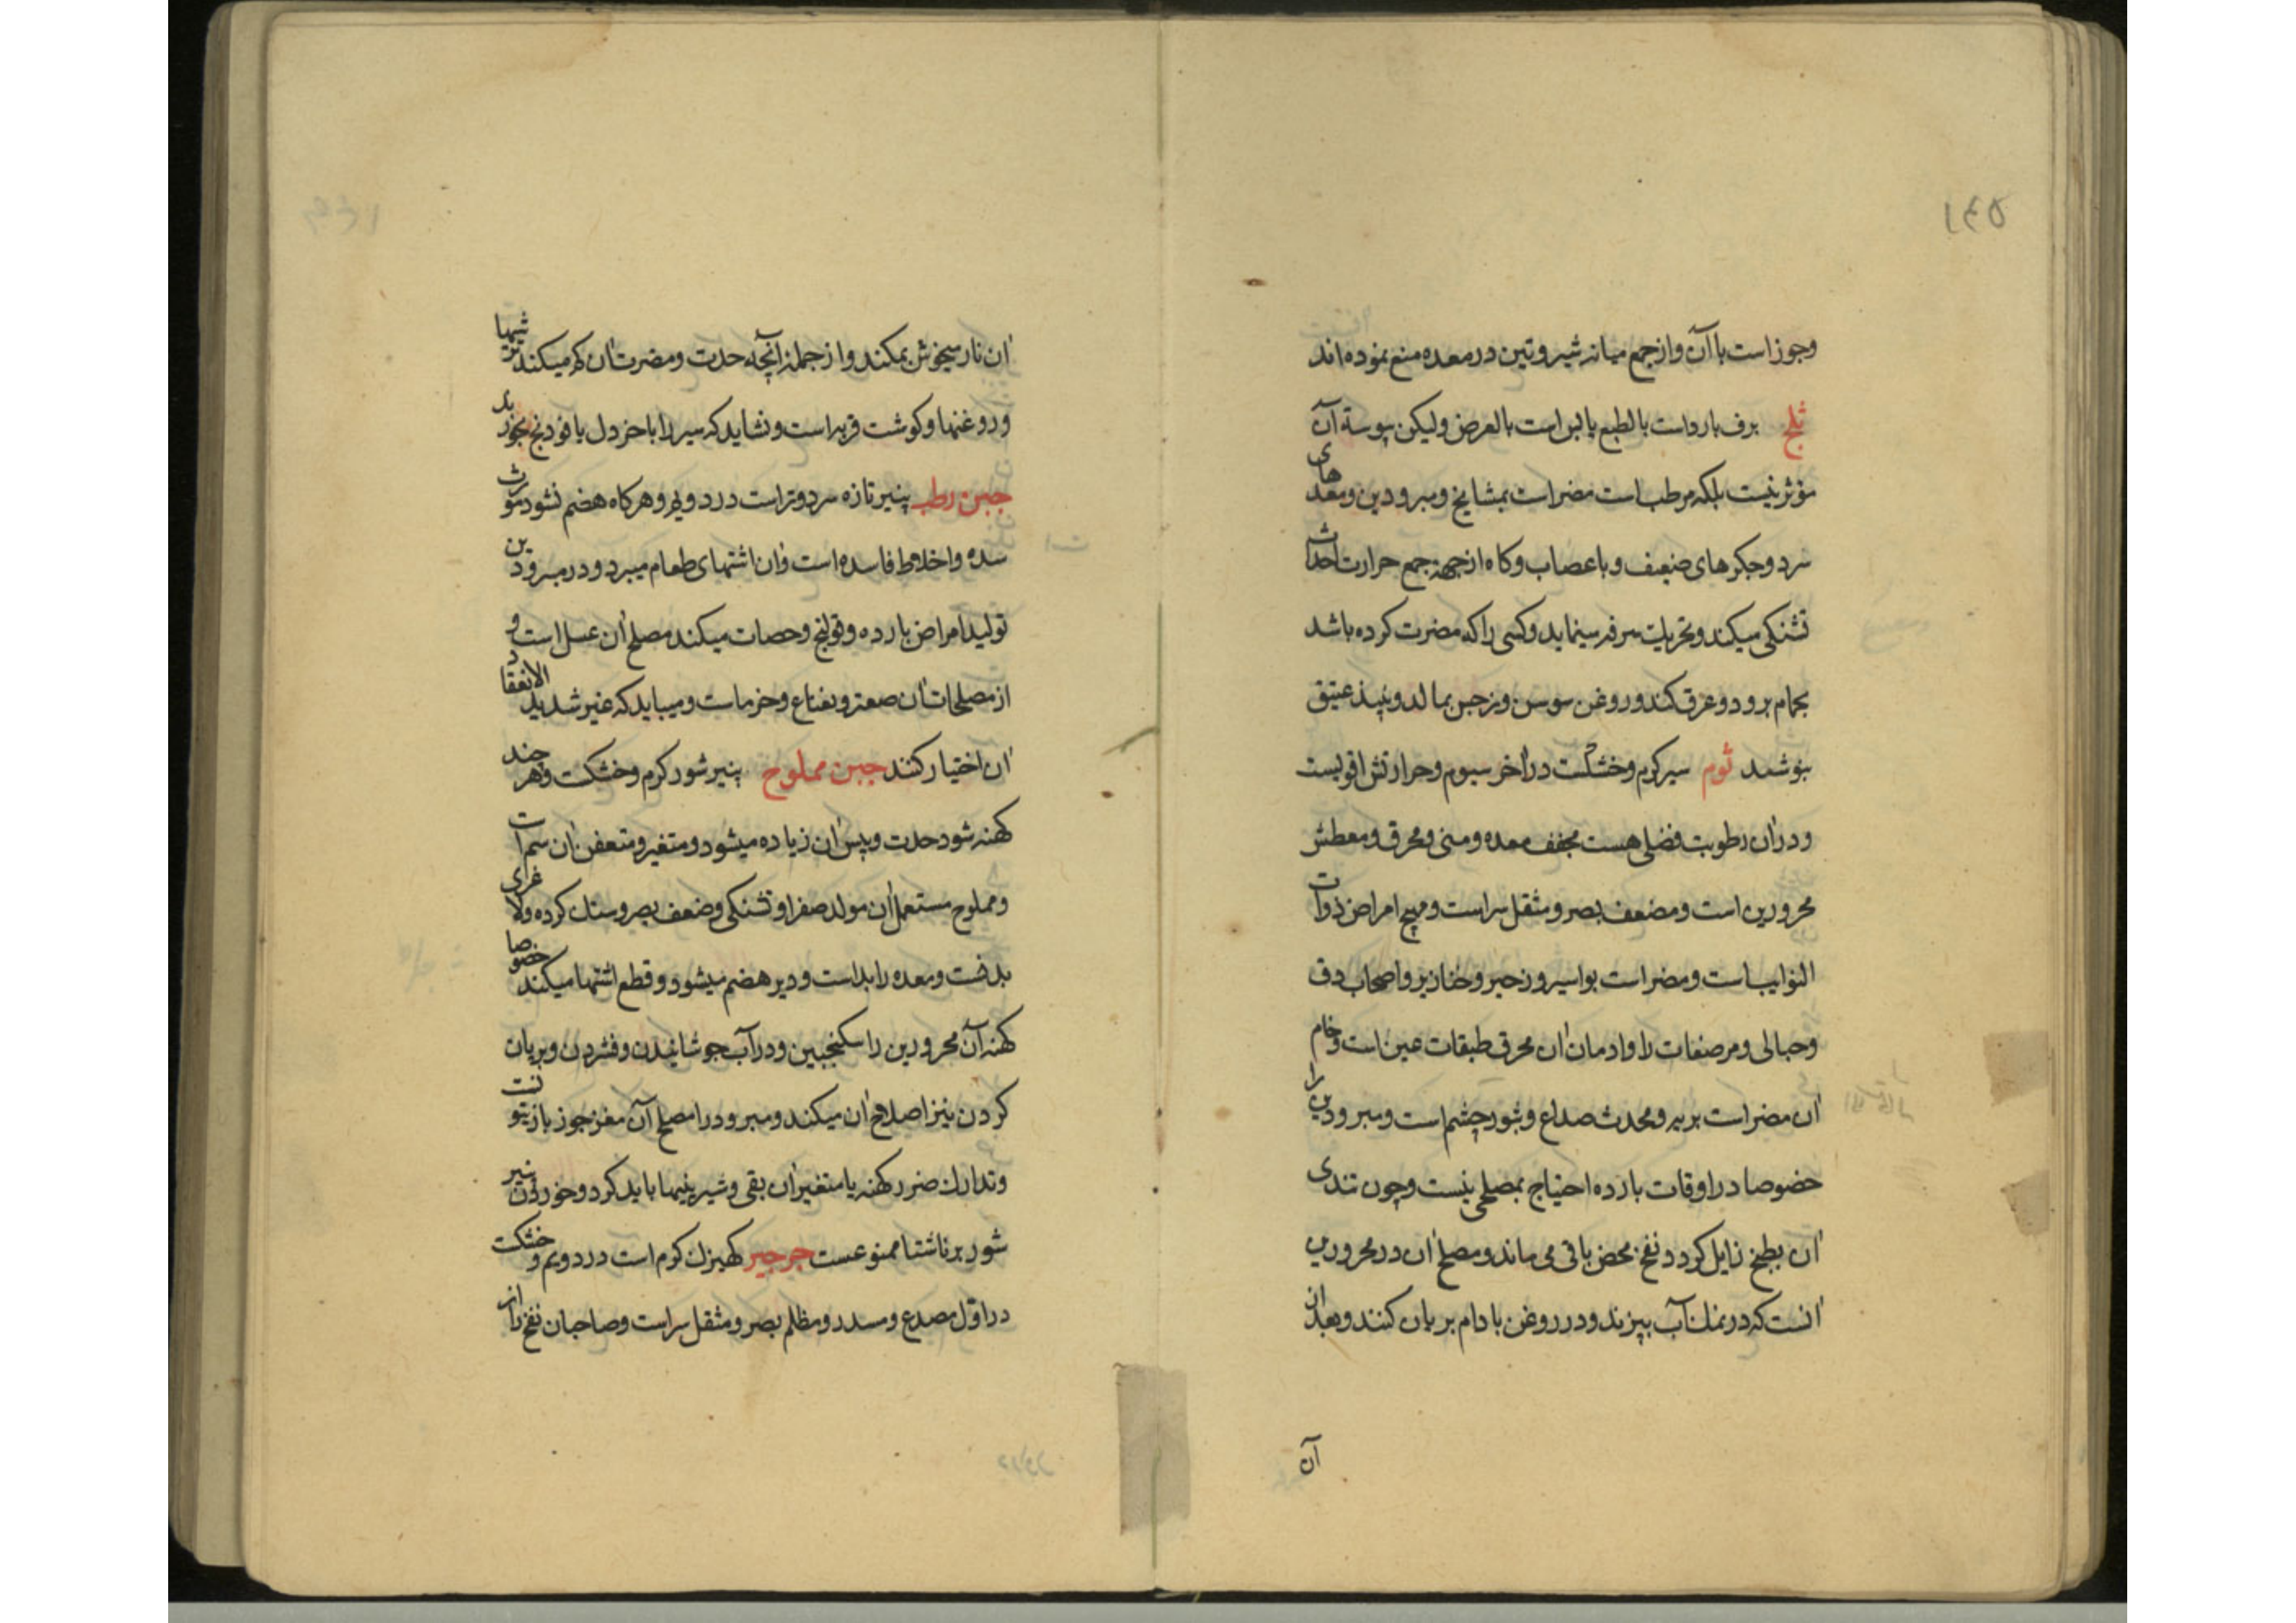 ۱۴۵
وجوز است با آن و از جمع میانه شیر و تین در معده منع نموده‌اند
ثلج برف بارد است بالطبع یابس است بالعرض ولیکن یبوسة آن
مؤثر نیست بلکه مرطب است مضر است بمشایخ و مبرودین و معدهای
سرد و جکرهای ضعیف و باعصاب و کاه از جهة جمع حرارت احداث
تشنکی میکند و تحریك سرفه مینماید و کسی را که مضرت کرده باشد
بحمام برود و عرق کند و روغن سوسن و نرجس بمالد و نبیذ عتیق
بنوشد ثوم سیر کرم و خشکست در آخر سیوم و حرارتش اقویست
و در ان رطوبت فضلی هست مجفف معده و منی و محرق و معطش
محرورین است و مضعف بصر و مثقل سر است و مهیج امراض ذوات
النوایب است و مضر است بواسیر و زحیر و خنازیر و اصحاب دق
و حبالی و مرضعات را و ادمان ان محرق طبقات عین است و خام
ان مضر است بریه و محدث صداع و بثور چشم است و مبرودین را
خصوصا در اوقات بارده احتیاج بمصلحی نیست و چون تندی
ان بطبخ زایل کردد نفخ محض باقی می ماند و مصلح ان در محرورین
انست که در نمك آب بپزند و در روغن بادام بریان کنند و بعد از ان
آن
ان نار میخوش بمکند و از جمله آنچه حدت و مضرت ان کم میکند ترشیها
و روغنها و کوشت فربه است و نشاید که سیر را با خردل یا فودنج بخورید
جبن رطب پنیر تازه سرد و تر است در دویم و هر کاه هضم نشود مورث
سده و اخلاط فاسده است و ان اشتهای طعام میبرد و در مبرودین
تولید امراض بارده و قولنج و حصات میکند مصلح ان عسل است و
از مصلحات ان صعتر و نعناع و خرماست و میباید که غیر شدید الانعقاد
ان اختیار کنند جبن مملوح پنیر شور کرم و خشکست و هر چند
کهنه شود حدت و یبس ان زیاده میشود و متغیر و متعفن ان سم است
و مملوح مستعمل ان مولد صفرا و تشنکی و ضعف بصر و سنك کرده و لاغری
بدنست و معده را بد است و دیر هضم میشود و قطع اشتها میکند خصوصا
کهنه آن محرورین را سکنجبین و در آب جوشانیدن و فشردن و بریان
کردن نیز اصلاح ان میکند و مبرود را مصلح آن مغز جوز باز یتونست
و تدارك ضرر کهنه یا متغیر ان بقی و شیرینیها باید کرد و خوردن پنیر
شور بر ناشتا ممنوعست جرجیر کهیزك کرم است در دویم و خشکت
در اول مصدع و مسدد و مظلم بصر و مثقل سر است و صاحبان نفخ را از